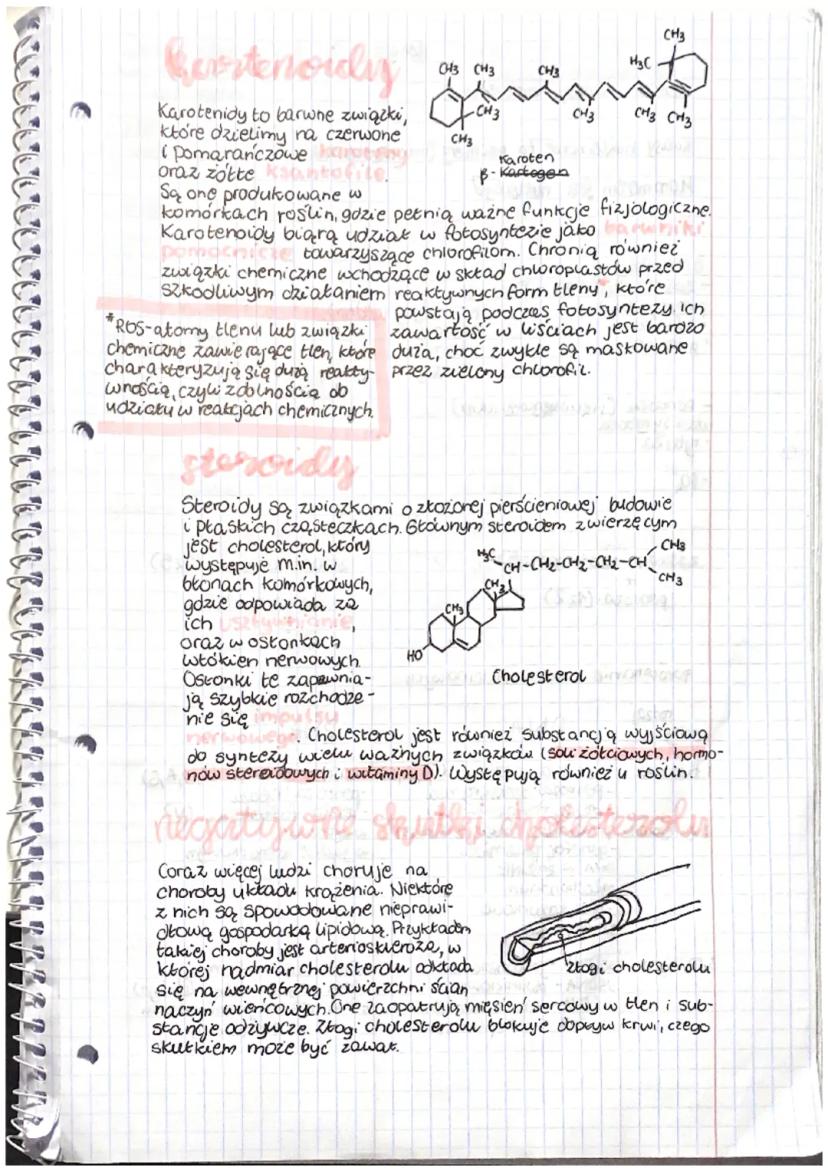 karotenoidy
Karotenidy to barwne związki,
które dzielimy na czerwone
i pomarańczowe karoteny
oraz żółte ksantofile.
Są one produkowane w
komórkach roślin, gdzie pełnią ważne funkcje fizjologiczne.
Karotenoidy biorą udział w fotosyntezie jako barwniki
pomocnicze towarzyszące chlorofilom. Chronią również
związki chemiczne wchodzące w skład chloroplastów przed
szkodliwym działaniem reaktywnych form tlenu*, które
powstają podczas fotosyntezy. Ich
zawartość w liściach jest bardzo
duża, choć zwykle są maskowane
przez zielony chlorofil.
CH3 CH3 CH3 H3C CH3
CH3 CH3 CH3 CH3 CH3
Karoten
β-
*RTS-atomy tlenu lub związki
chemiczne zawierające tlen, które
charakteryzują się dużą reakty-
wnością, czyli zdolnością do
udziału w reakcjach chemicznych
steroidy
Steroidy są związkami o złożonej pierścieniowej budowie
i płaskich cząsteczkach. Głównym steroidem zwierzęcym
jest cholesterol, który
występuje m.in. w
błonach komórkowych,
gdzie odpowiada za
ich usztywnianie,
oraz w osłonkach
włókien nerwowych
Osłonki te zapewnia-
ją szybkie rozchodze-
nie się impulsu
nerwowego. Cholesterol jest również substancją wyjściową
do syntezy wielu ważnych związków (soli żółciowych, hormo-
nów steroidowych i witaminy D). Występują również u roślin.
H3C CH-CH2-CH2-CH2-CH CH3
CH3
CH3
CH3
HO
Cholesterol
negatywne skutki cholesterolu
Coraz więcej ludzi choruje na
choroby układu krążenia. Niektóre
z nich są spowodowane nieprawi-
dłową gospodarką lipidową. Przykładem
takiej choroby jest arterioskleroza, w
której nadmiar cholesterolu odkłada
się na wewnętrznej powierzchni ścian
naczyń wieńcowych. One zaopatrują mięsień sercowy w tlen i sub-
stancje odżywcze. Złogi cholesterolu blokuje dopływ krwi, czego
skutkiem może być zawał.
złogi cholesterolu